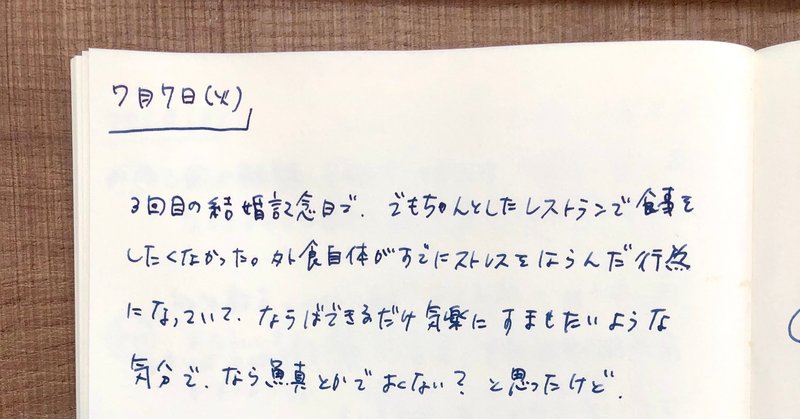 7月7日(火)
3回目の結婚記念日で、でもちゃんとしたレストランで食事を
したくなかった。外食自体がすでにストレスをはらんだ行為
になっていて、ならばできるだけ気楽にすませたいような
気分で、なら魚真とかでよくない？と思ったけど、